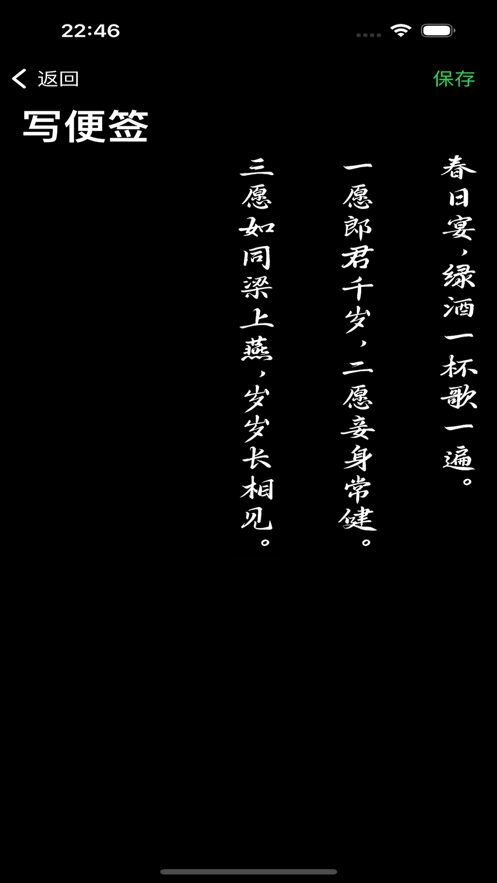 22:46
返回
保存
写便签
春日宴，绿酒一杯歌一遍。
一愿郎君千岁，二愿妾身常健。
三愿如同梁上燕，岁岁长相见。